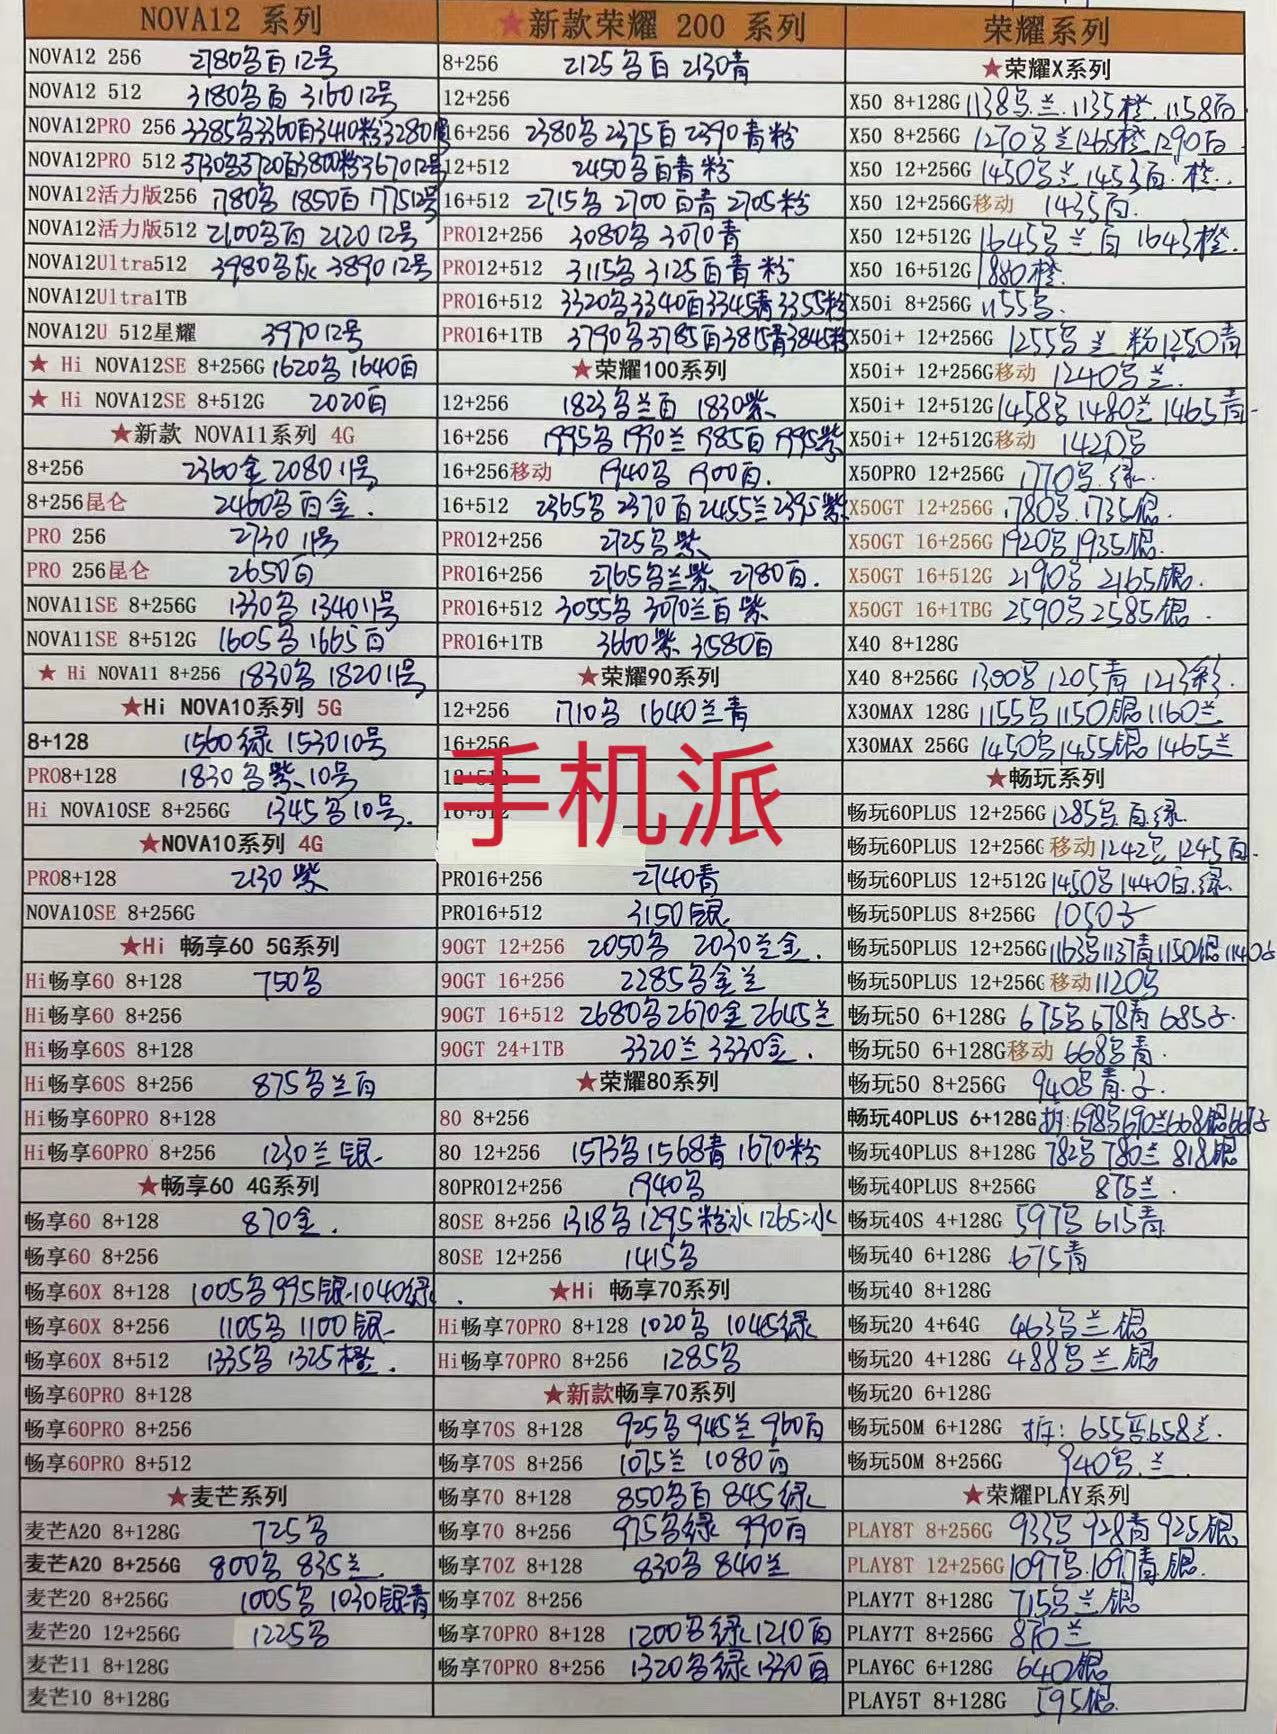 NOVA12 系列
NOVA12 256 2780 白 12号
NOVA12 512 3180 白 3160 12号
NOVA12PRO 256 3385 3360白 3410粉 3280 1号
NOVA12PRO 512 3730 3720白 3800粉 3670 12号
NOVA12活力版256 1780 1850白 1775 12号
NOVA12活力版512 2100 白 2120 12号
NOVA12Ultra512 3980 灰 3890 12号
NOVA12Ultra1TB
NOVA12U 512星耀 3970 12号
★ Hi NOVA12SE 8+256G 1620 1640白
★ Hi NOVA12SE 8+512G 2020白
★新款 NOVA11系列 4G
8+256 2360金 2080 11号
8+256昆仑 2460 白金.
PRO 256 2730 11号
PRO 256昆仑 2650白
NOVA11SE 8+256G 1330 1340 11号
NOVA11SE 8+512G 1605 1665白
★ Hi NOVA11 8+256 1830 1820 11号
★Hi NOVA10系列 5G
8+128 1560绿 1530 10号
PRO8+128 1830 紫 10号
Hi NOVA10SE 8+256G 1345 10号.
★NOVA10系列 4G
PRO8+128 2130紫
NOVA10SE 8+256G
★Hi 畅享60 5G系列
Hi畅享60 8+128 750
Hi畅享60 8+256
Hi畅享60S 8+128
Hi畅享60S 8+256 875 兰白
Hi畅享60PRO 8+128
Hi畅享60PRO 8+256 1230兰银
★畅享60 4G系列
畅享60 8+128 870金.
畅享60 8+256
畅享60X 8+128 1005 995银 1040绿
畅享60X 8+256 1105 1100银
畅享60X 8+512 1335 1325橙.
畅享60PRO 8+128
畅享60PRO 8+256
畅享60PRO 8+512
★麦芒系列
麦芒A20 8+128G 725
麦芒A20 8+256G 800 835兰
麦芒20 8+256G 1005 1030银青
麦芒20 12+256G 1225
麦芒11 8+128G
麦芒10 8+128G
★新款荣耀 200 系列
8+256 2125 白 2130青
12+256
16+256 2380 2375白 2390青粉
12+512 2450 白青粉
16+512 2715 2700白青 2705粉
PRO12+256 3080 3070青
PRO12+512 3115 3125白青粉
PRO16+512 3320 3340白 3345青 3355粉
PRO16+1TB 3790 3785白 3815青 3845粉
★荣耀100系列
12+256 1823 兰白 1830紫
16+256 1995 1990兰 1985白 1995紫
16+256移动 1940 1900白.
16+512 2365 2370白 2455兰 2395紫
PRO12+256 2725 紫
PRO16+256 2765 兰紫 2780白.
PRO16+512 3055 3070兰白紫
PRO16+1TB 3660紫 3580白
★荣耀90系列
12+256 1710 1640兰青
16+256
12+512
16+512
手机派
PRO16+256 2740青
PRO16+512 3150银
90GT 12+256 2050 2030兰金.
90GT 16+256 2285 金兰
90GT 16+512 2680 2670金 2645兰
90GT 24+1TB 3320兰 3330金.
★荣耀80系列
80 8+256
80 12+256 1573 1568青 1670粉
80PRO12+256 1940
80SE 8+256 1318 1295粉冰 1265冰
80SE 12+256 1415
★Hi 畅享70系列
Hi畅享70PRO 8+128 1020 1045绿
Hi畅享70PRO 8+256 1285
★新款畅享70系列
畅享70S 8+128 925 945兰 960白
畅享70S 8+256 1075兰 1080白
畅享70 8+128 850 白 845绿
畅享70 8+256 975 绿 990白
畅享70Z 8+128 830 840兰
畅享70Z 8+256
畅享70PRO 8+128 1200 绿 1210白
畅享70PRO 8+256 1320 绿 1330白
荣耀系列
★荣耀X系列
X50 8+128G 1138 兰. 1135橙. 1158白
X50 8+256G 1270 兰 1265橙 1290白
X50 12+256G 1450 兰 1453白.橙.
X50 12+256G移动 1435白.
X50 12+512G 1645 兰白 1643橙.
X50 16+512G 1880橙.
X50i 8+256G 1155
X50i+ 12+256G 1255 兰 粉 1250青
X50i+ 12+256G移动 1240 兰.
X50i+ 12+512G 1458 1480兰 1465青
X50i+ 12+512G移动 1420
X50PRO 12+256G 1770 .绿.
X50GT 12+256G 1780 .1735银.
X50GT 16+256G 1920 1935银.
X50GT 16+512G 2190 2165银.
X50GT 16+1TBG 2590 2585银.
X40 8+128G
X40 8+256G 1300 1205青 1213彩.
X30MAX 128G 1155 1150银 1160兰
X30MAX 256G 1450 1455银 1465兰
★畅玩系列
畅玩60PLUS 12+256G 1285 .白.绿
畅玩60PLUS 12+256G 移动 1242 1245白.
畅玩60PLUS 12+512G 1450 1440白.绿.
畅玩50PLUS 8+256G 1050
畅玩50PLUS 12+256G 1163 1137青 1150银 1140
畅玩50PLUS 12+256G 移动 1120
畅玩50 6+128G 675 678青 685
畅玩50 6+128G移动 668 青.
畅玩50 8+256G 940 青.
畅玩40PLUS 6+128G 拆: 698 690兰 668银
畅玩40PLUS 8+128G 782 780兰 818银
畅玩40PLUS 8+256G 875兰.
畅玩40S 4+128G 597 615青
畅玩40 6+128G 675青
畅玩40 8+128G
畅玩20 4+64G 463 兰银
畅玩20 4+128G 488 兰银
畅玩20 6+128G
畅玩50M 6+128G 拆: 655 658兰.
畅玩50M 8+256G 940 .兰.
★荣耀PLAY系列
PLAY8T 8+256G 933 928青 925银
PLAY8T 12+256G 1097 .1097青.银.
PLAY7T 8+128G 715 兰银
PLAY7T 8+256G 870兰
PLAY6C 6+128G 640银
PLAY5T 8+128G 595银